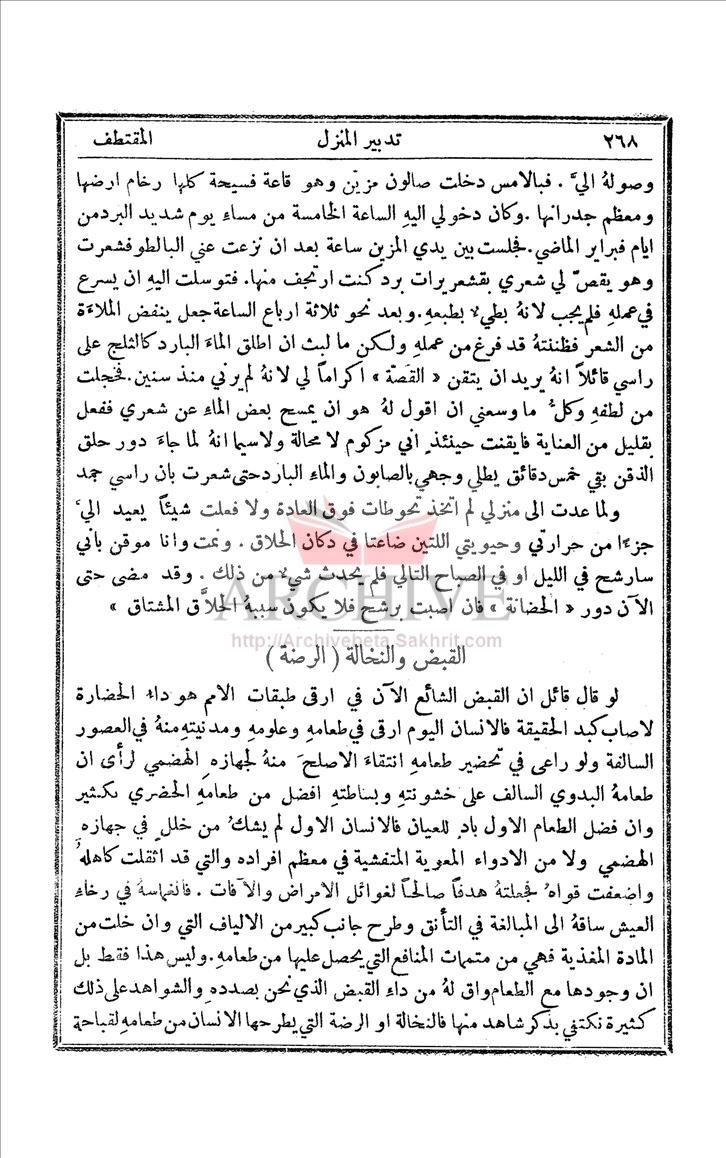 ٢٦٨ تدبير المنزل المقتطف
وصولهُ اليَّ . فبالامس دخلت صالون مزيّن وهو قاعة فسيحة كلها رخام ارضها
ومعظم جدرانها . وكان دخولي اليهِ الساعة الخامسة من مساء يوم شديد البرد من
ايام فبراير الماضي . فجلست بين يدي المزين ساعة بعد ان نزعت عني البالطو فشعرت
وهو يقصّ لي شعري بقشعريرات برد كنت ارتجف منها . فتوسلت اليهِ ان يسرع
في عملهِ فلم يجب لانهُ بطيءٌ بطبعهِ . وبعد نحو ثلاثة ارباع الساعة جعل ينفض الملاءة
من الشعر فظننتهُ قد فرغ من عملهِ ولكن ما لبث ان اطلق الماءَ البارد كالثلج على
راسي قائلاً انهُ يريد ان يتقن « القصّة » اكراماً لي لانهُ لم يرني منذ سنين . فخجلت
من لطفهِ وكلُّ ما وسعني ان اقول لهُ هو ان يمسح بعض الماء عن شعري ففعل
بقليل من العناية فايقنت حينئذٍ اني مزكوم لا محالة ولاسيما انهُ لما جاءَ دور حلق
الذقن بقي خمس دقائق يطلي وجهي بالصابون والماء البارد حتى شعرت بان راسي جمد
ولما عدت الى منزلي لم اتخذ تحوطات فوق العادة ولا فعلت شيئاً يعيد اليَّ
جزءًا من حرارتي وحيويتي اللتين ضاعتا في دكان الحلاق . ونمت وانا موقن باني
سارشح في الليل او في الصباح التالي فلم يحدث شيءٌ من ذلك . وقد مضى حتى
الآن دور « الحضانة » فان اصبت برشح فلا يكون سببهُ الحلاَّق المشتاق »
ARCHIVE
http://Archivebeta.Sakhrit.com
القبض والنخالة ( الرضة )
لو قال قائل ان القبض الشائع الآن في ارقى طبقات الامم هو داءُ الحضارة
لاصاب كبد الحقيقة فالانسان اليوم ارقى في طعامهِ وعلومهِ ومدنيتهِ منهُ في العصور
السالفة ولو راعى في تحضير طعامهِ انتقاءَ الاصلح منهُ لجهازهِ الهضمي لرأى ان
طعامهُ البدوي السالف على خشونتهِ وبساطتهِ افضل من طعامهِ الحضري بكثير
وان فضل الطعام الاول بادٍ للعيان فالانسان الاول لم يشكُ من خللٍ في جهازهِ
الهضمي ولا من الادواء المعوية المتفشية في معظم افرادهِ والتي قد اثقلت كاهلهُ
واضعفت قواهُ فجعلتهُ هدفاً صالحاً لغوائل الامراض والآفات . فانغماسهُ في رخاء
العيش ساقهُ الى المبالغة في التأنق وطرح جانب كبير من الالياف التي وان خلت من
المادة المغذية فهي من متممات المنافع التي يحصل عليها من طعامهِ . وليس هذا فقط بل
ان وجودها مع الطعام واقٍ لهُ من داء القبض الذي نحن بصددهِ والشواهد على ذلك
كثيرة نكتفي بذكر شاهد منها فالنخالة او الرضة التي يطرحها الانسان من طعامهِ لقباحة